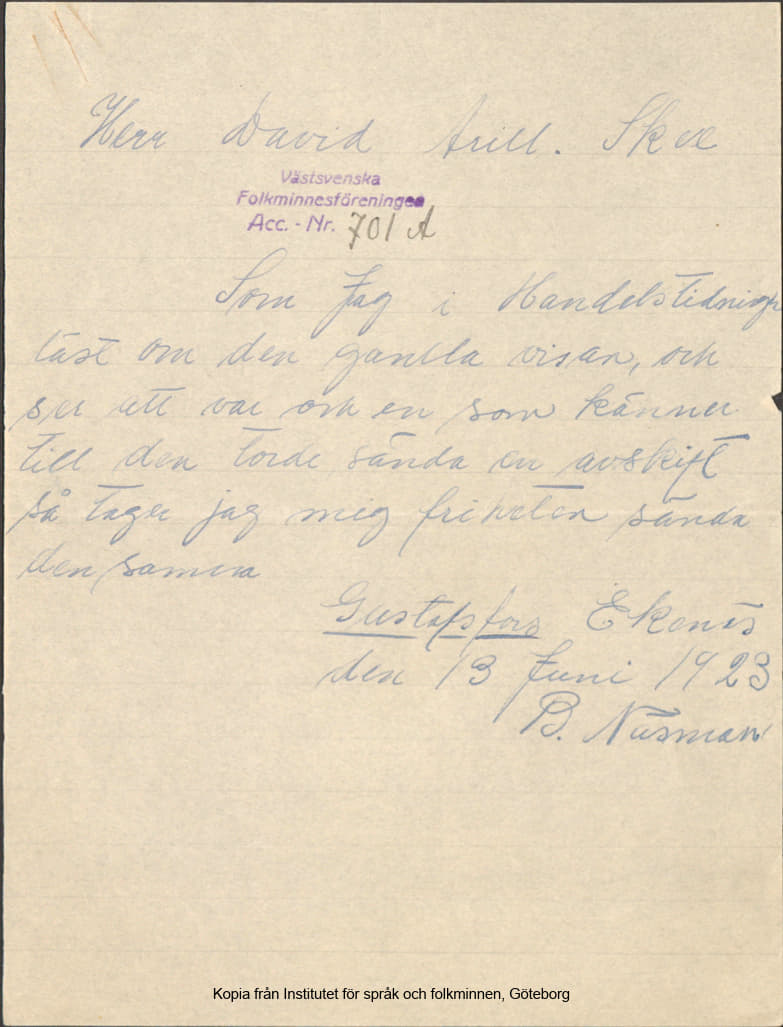 Herr David Arill. Skee
Västsvenska
Folkminnesföreningen
Acc. - Nr. 701 A
Som Jag i Handelstidnign
läst om den gamla visan, och
ser att var och en som känner
till den torde sända en avskift
så tager jag mig friheten sända
den samma
Gustafsfors Ekenäs
den 13 Juni 1923
B. Nusman
Kopia från Institutet för språk och folkminnen, Göteborg